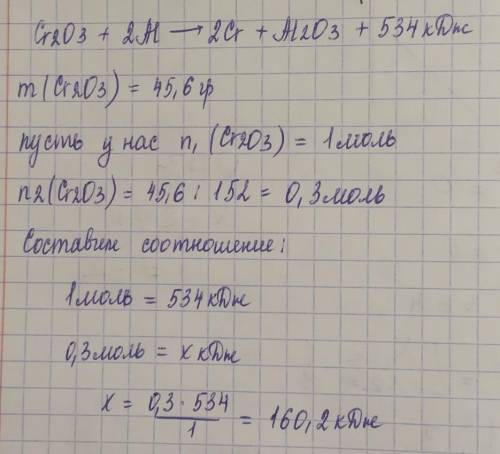 Cr2O3 + 2Al → 2Cr + Al2O3 + 534 кДж
m (Cr2O3) = 45,6 гр
пусть у нас n1 (Cr2O3) = 1 моль
n2 (Cr2O3) = 45,6 : 152 = 0,3 моль
Составим соотношение:
1 моль = 534 кДж
0,3 моль = x кДж
x = 0,3 · 534 / 1 = 160,2 кДж